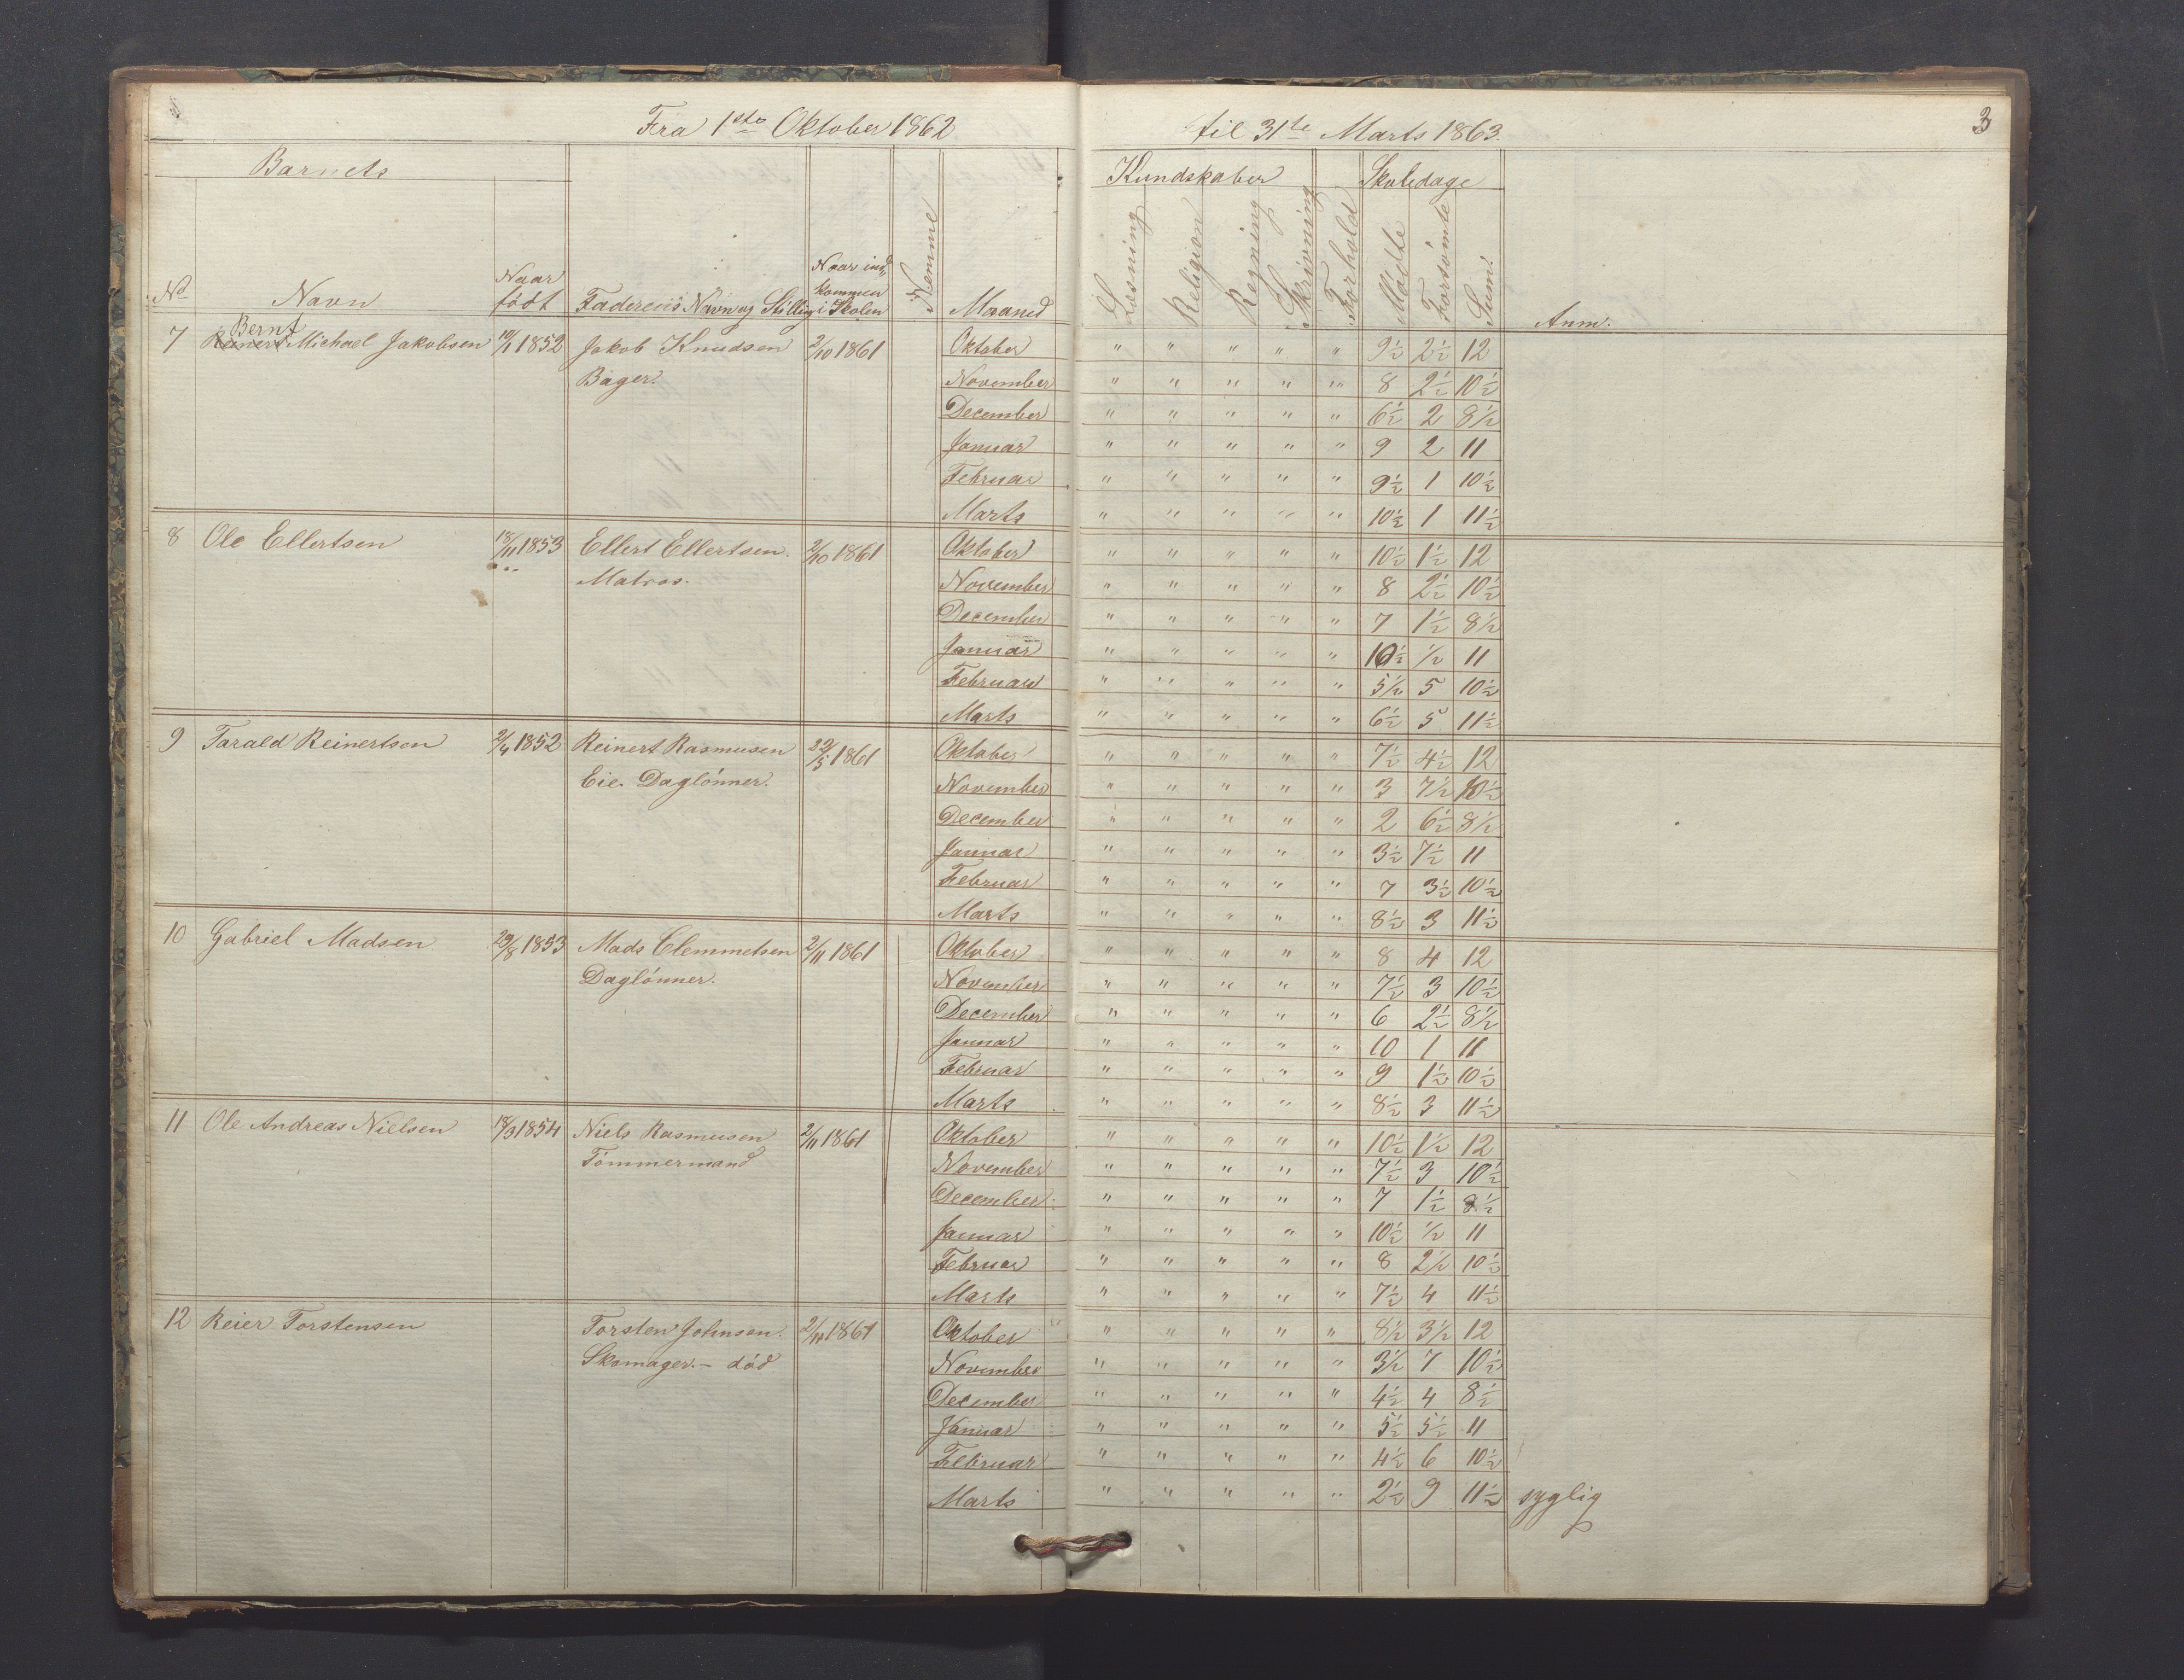 Fra 1ste Oktober 1862 til 31te Marts 1863. 3
Barnets Kundskaber Skoledage
No Navn Naar født Faderens Navn og Stilling Naar ind„kommen i Skolen Nemme Maaned Læsning Religion Regning Skrivning Forhold Mødte Forsømte Sum. Anm.
7 Reinert Bernt Michael Jakobsen 10/1 1852 Jakob Knudsen 2/10 1861 Oktober " " " " " 9½ 2½ 12
Bager. November " " " " " 8 2½ 10½
December " " " " " 6½ 2 8½
Januar " " " " " 9 2 11
Februar " " " " " 9½ 1 10½
Marts " " " " " 10½ 1 11½
8 Ole Ellertsen 18/11 1853 Ellert Ellertsen. 2/10 1861 Oktober " " " " " 10½ 1½ 12
Matros. November " " " " " 8 2½ 10½
December " " " " " 7 1½ 8½
Januar " " " " " 10½ ½ 11
Februar " " " " " 5½ 5 10½
Marts " " " " " 6½ 5 11½
9 Tarald Reinertsen 2/4 1852 Reinert Rasmusen 22/5 1861 Oktober " " " " " 7½ 4½ 12
Eie. Daglønner. November " " " " " 3 7½ 10½
December " " " " " 2 6½ 8½
Januar " " " " " 3½ 7½ 11
Februar " " " " " 7 3½ 10½
Marts " " " " " 8½ 3 11½
10 Gabriel Madsen 29/8 1853 Mads Clemmetsen 2/11 1861 Oktober " " " " " 8 4 12
Daglønner. November " " " " " 7½ 3 10½
December " " " " " 6 2½ 8½
Januar " " " " " 10 1 11
Februar " " " " " 9 1½ 10½
Marts " " " " " 8½ 3 11½
11 Ole Andreas Nielsen 18/9 1854 Niels Rasmusen 2/11 1861 Oktober " " " " " 10½ 1½ 12
Tømmermand November " " " " " 7½ 3 10½
December " " " " " 7 1½ 8½
Januar " " " " " 10½ ½ 11
Februar " " " " " 8 2½ 10½
Marts " " " " " 7½ 4 11½
12 Reier Torstensen Torsten Johnsen. 2/11 1861 Oktober " " " " " 8½ 3½ 12
Skomager. – død November " " " " " 3½ 7 10½
December " " " " " 4½ 4 8½
Januar " " " " " 5½ 5½ 11
Februar " " " " " 4½ 6 10½
Marts " " " " " 2½ 9 11½ syglig